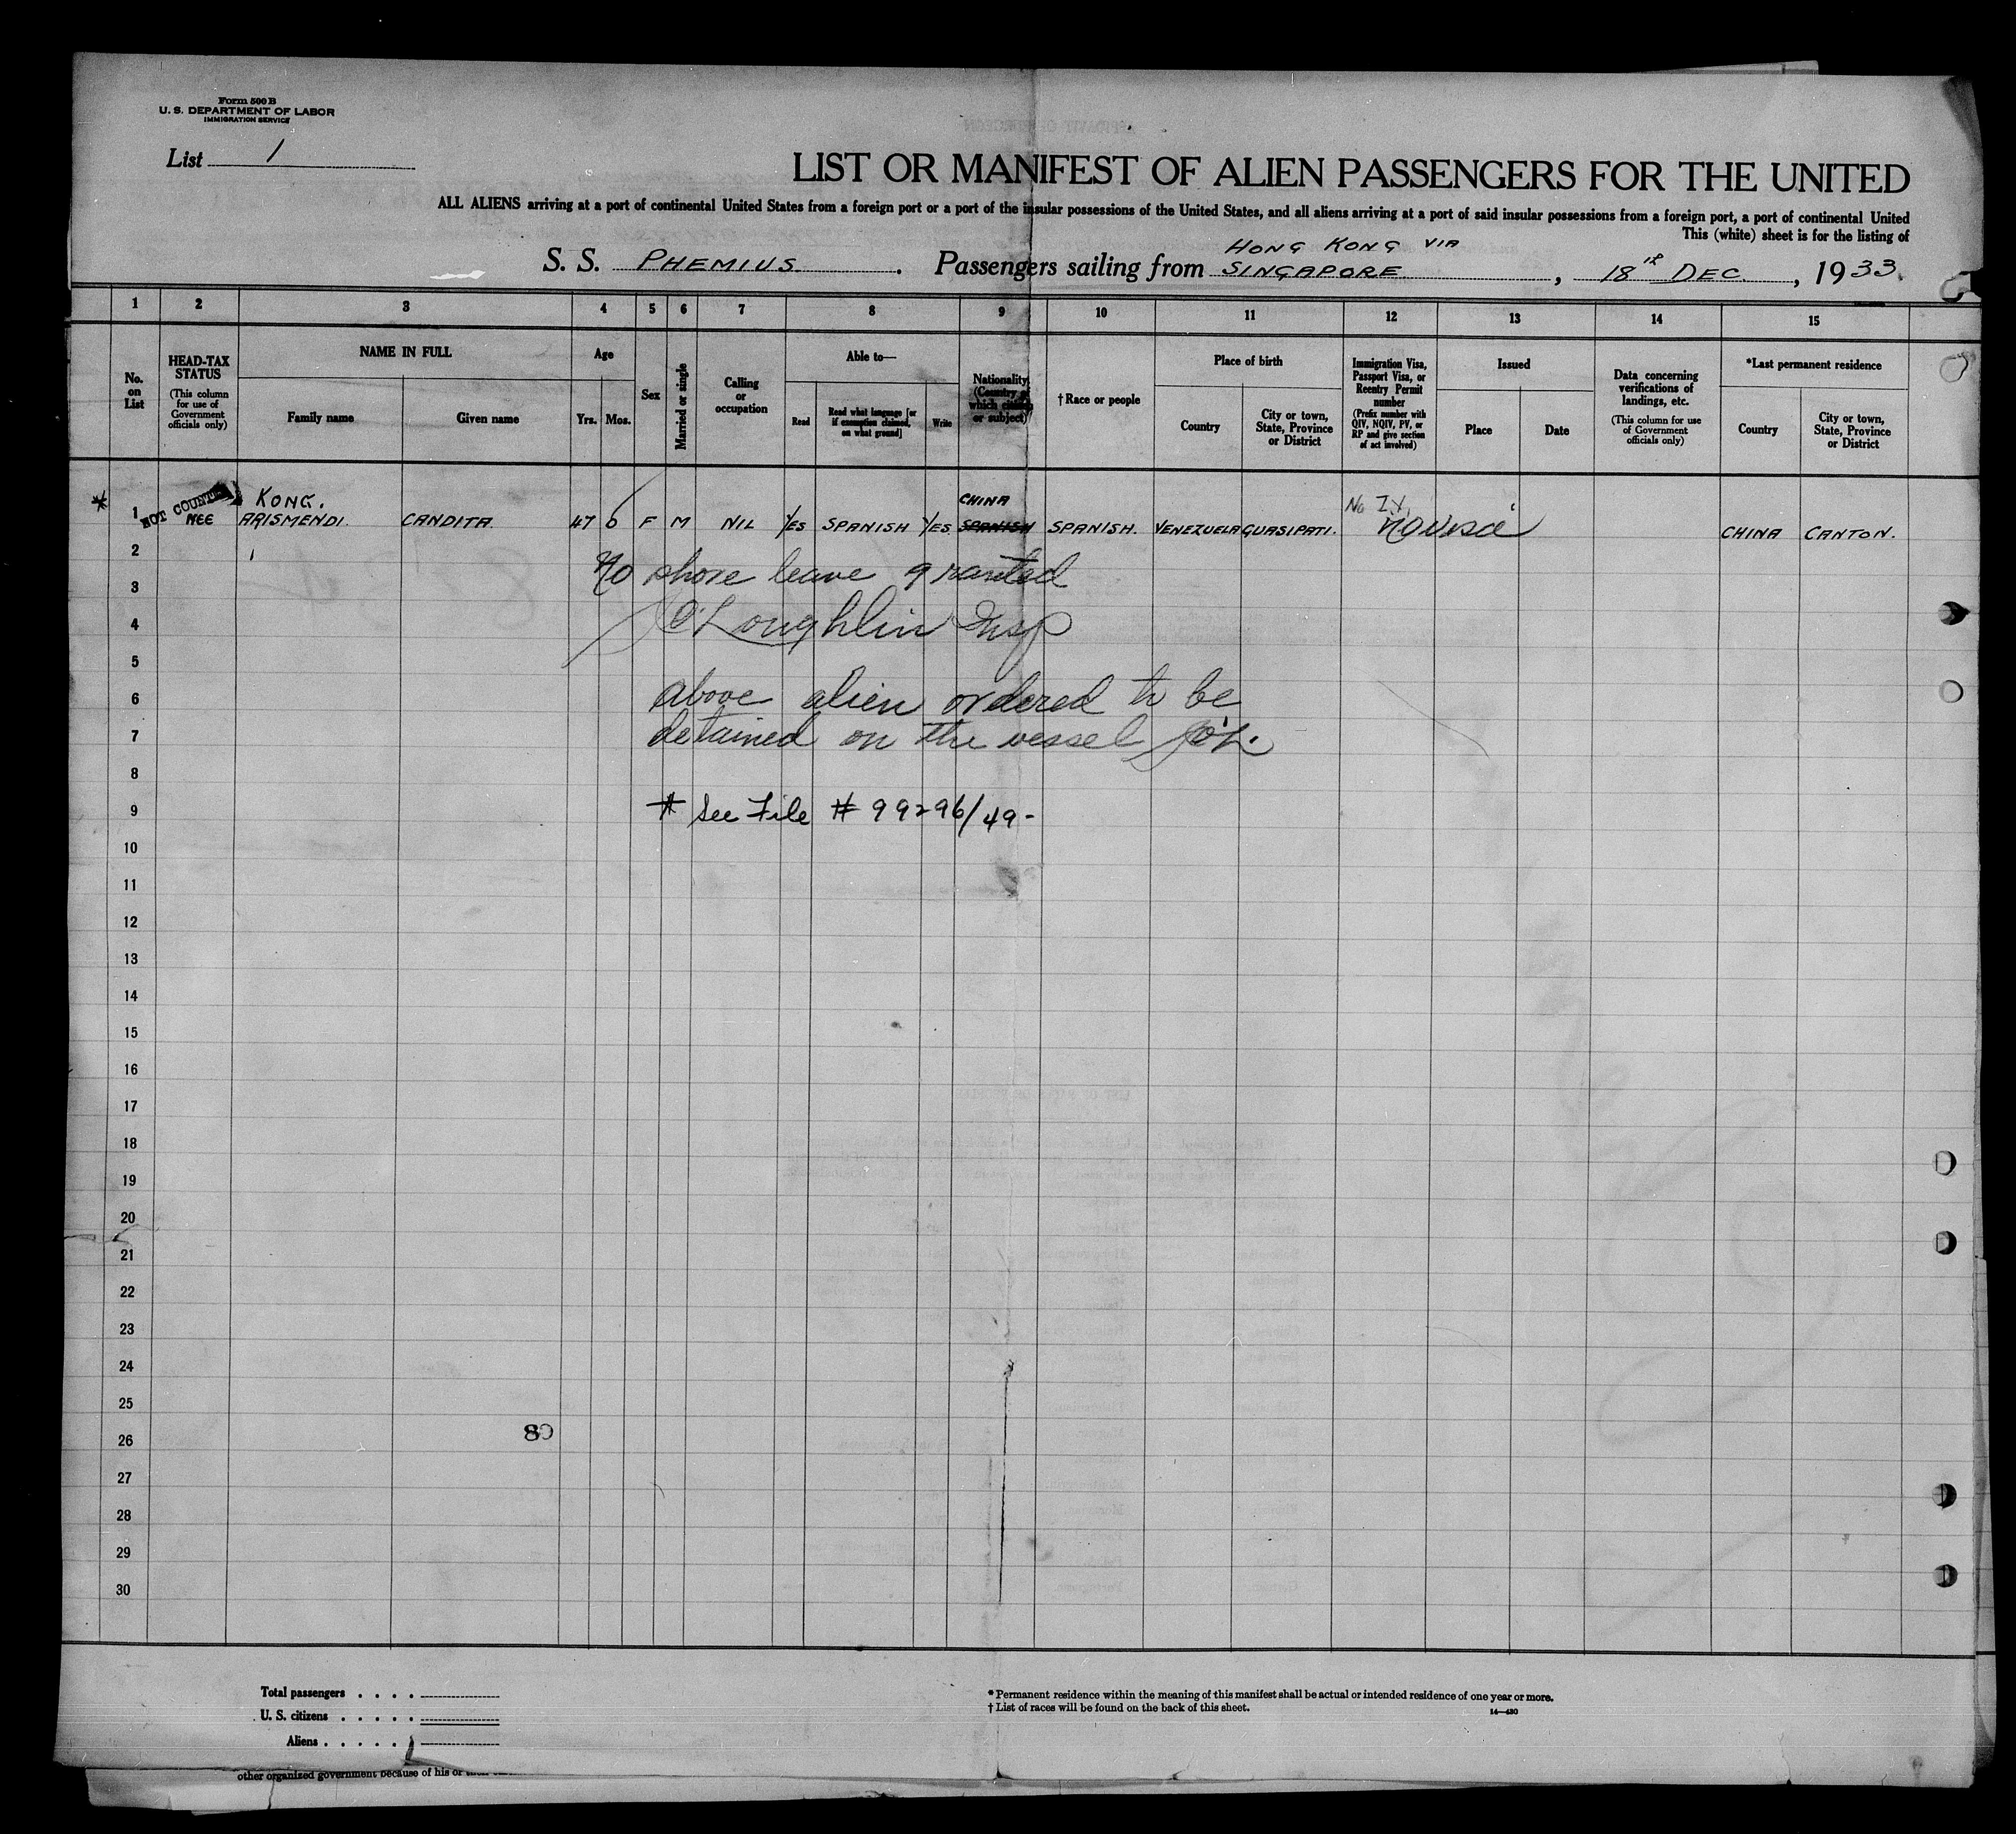 Form 500 B
U. S. DEPARTMENT OF LABOR
IMMIGRATION SERVICE
List 1
LIST OR MANIFEST OF ALIEN PASSENGERS FOR THE UNITED
ALL ALIENS arriving at a port of continental United States from a foreign port or a port of the insular possessions of the United States, and all aliens arriving at a port of said insular possessions from a foreign port, a port of continental United
This (white) sheet is for the listing of
HONG KONG VIA
S. S. PHEMIUS. Passengers sailing from SINGAPORE, 18th DEC., 1933.
1 2 3 4 5 6 7 8 9 10 11 12 13 14 15
No. on List
HEAD-TAX STATUS
(This column for use of Government officials only)
NAME IN FULL
Family name
Given name
Age
Yrs. Mos.
Sex
Married or single
Calling or occupation
Able to—
Read
Read what language [or if exemption claimed, on what ground]
Write
Nationality. (Country of which citizen or subject)
† Race or people
Place of birth
Country
City or town, State, Province or District
Immigration Visa, Passport Visa, or Reentry Permit number
(Prefix number with QIV, NQIV, PV, or RP and give section of act involved)
Issued
Place
Date
Data concerning verifications of landings, etc.
(This column for use of Government officials only)
*Last permanent residence
Country
City or town, State, Province or District
KONG. CHINA
* 1 NOT COUNTED NEE ARISMENDI. CANDITA. 47 6 F M NIL YES SPANISH YES SPANISH SPANISH. VENEZUELA GUASIPATI. No visa CHINA CANTON.
2
No shore leave granted
3
4 O'Loughlin Insp
5
6 above alien ordered to be
7 detained on the vessel O'L.
8
9 * See File # 99296/49-
10
11
12
13
14
15
16
17
18
19
20
21
22
23
24
25
80
26
27
28
29
30
Total passengers . . . .
U. S. citizens . . . . .
Aliens . . . . . 1
* Permanent residence within the meaning of this manifest shall be actual or intended residence of one year or more.
† List of races will be found on the back of this sheet.
14—430
other organized government because of his or